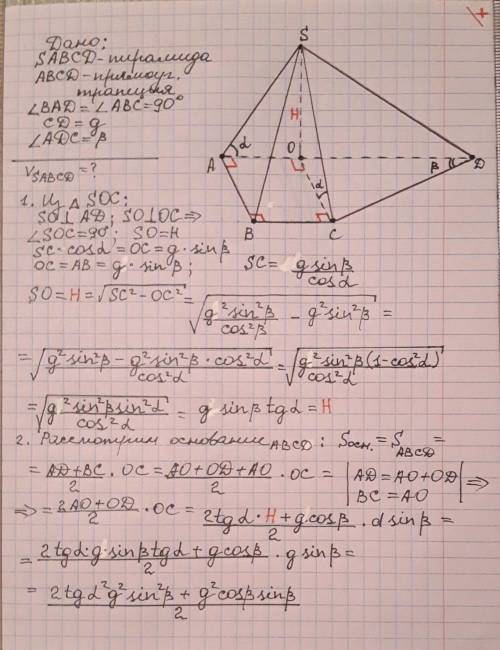 Дано:
SABCD-пирамида
ABCD-прямоуг.
трапеция
∠BAD=∠ABC=90°
CD=g
∠ADC=β
V_SABCD=?
1. Из △ SOC:
SO⊥AD; SO⊥OC⇒
∠SOC=90°; SO=H
SC·cosα=OC=g·sinβ
OC=AB=g·sinβ; SC= g sinβ / cosα
SO=H=√(SC²-OC²)=√(g²sin²β / cos²β - g²sin²β)=
=√((g²sin²β-g²sin²β·cos²α) / cos²α)=√(g²sin²β(1-cos²α) / cos²α)
=√(g²sin²βsin²α / cos²α)= g sinβ tgα=H
2. Рассмотрим основание ABCD: Sосн.=S_ABCD=
= (AD+BC)/2 · OC= (AO+OD+AO)/2 · OC= | AD=AO+OD
BC=AO | ⇒
⇒= (2AO+OD)/2 · OC= (2tgα·H+g cosβ)/2 · d sinβ=
= (2tgα·g·sinβ tgα+g cosβ)/2 · g sinβ=
= (2tgα²g²sin²β+g²cosβ sinβ)/2
S
H
A
α
O
β
D
α
B
C